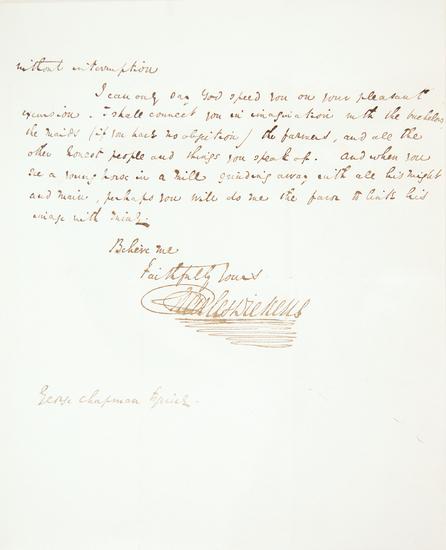 without interruption
I can only say God speed you on your pleasant
excursion. I shall connect you in imagination with the bachelors
the maids (if you have no objection) the farmers, and all the
other honest people and things you speak of. And when you
see a young horse in a mill grinding away with all his might
and main, perhaps you will do me the favor to link his
image with mine.
Believe me
Faithfully Yours
Charles Dickens
George Chapman